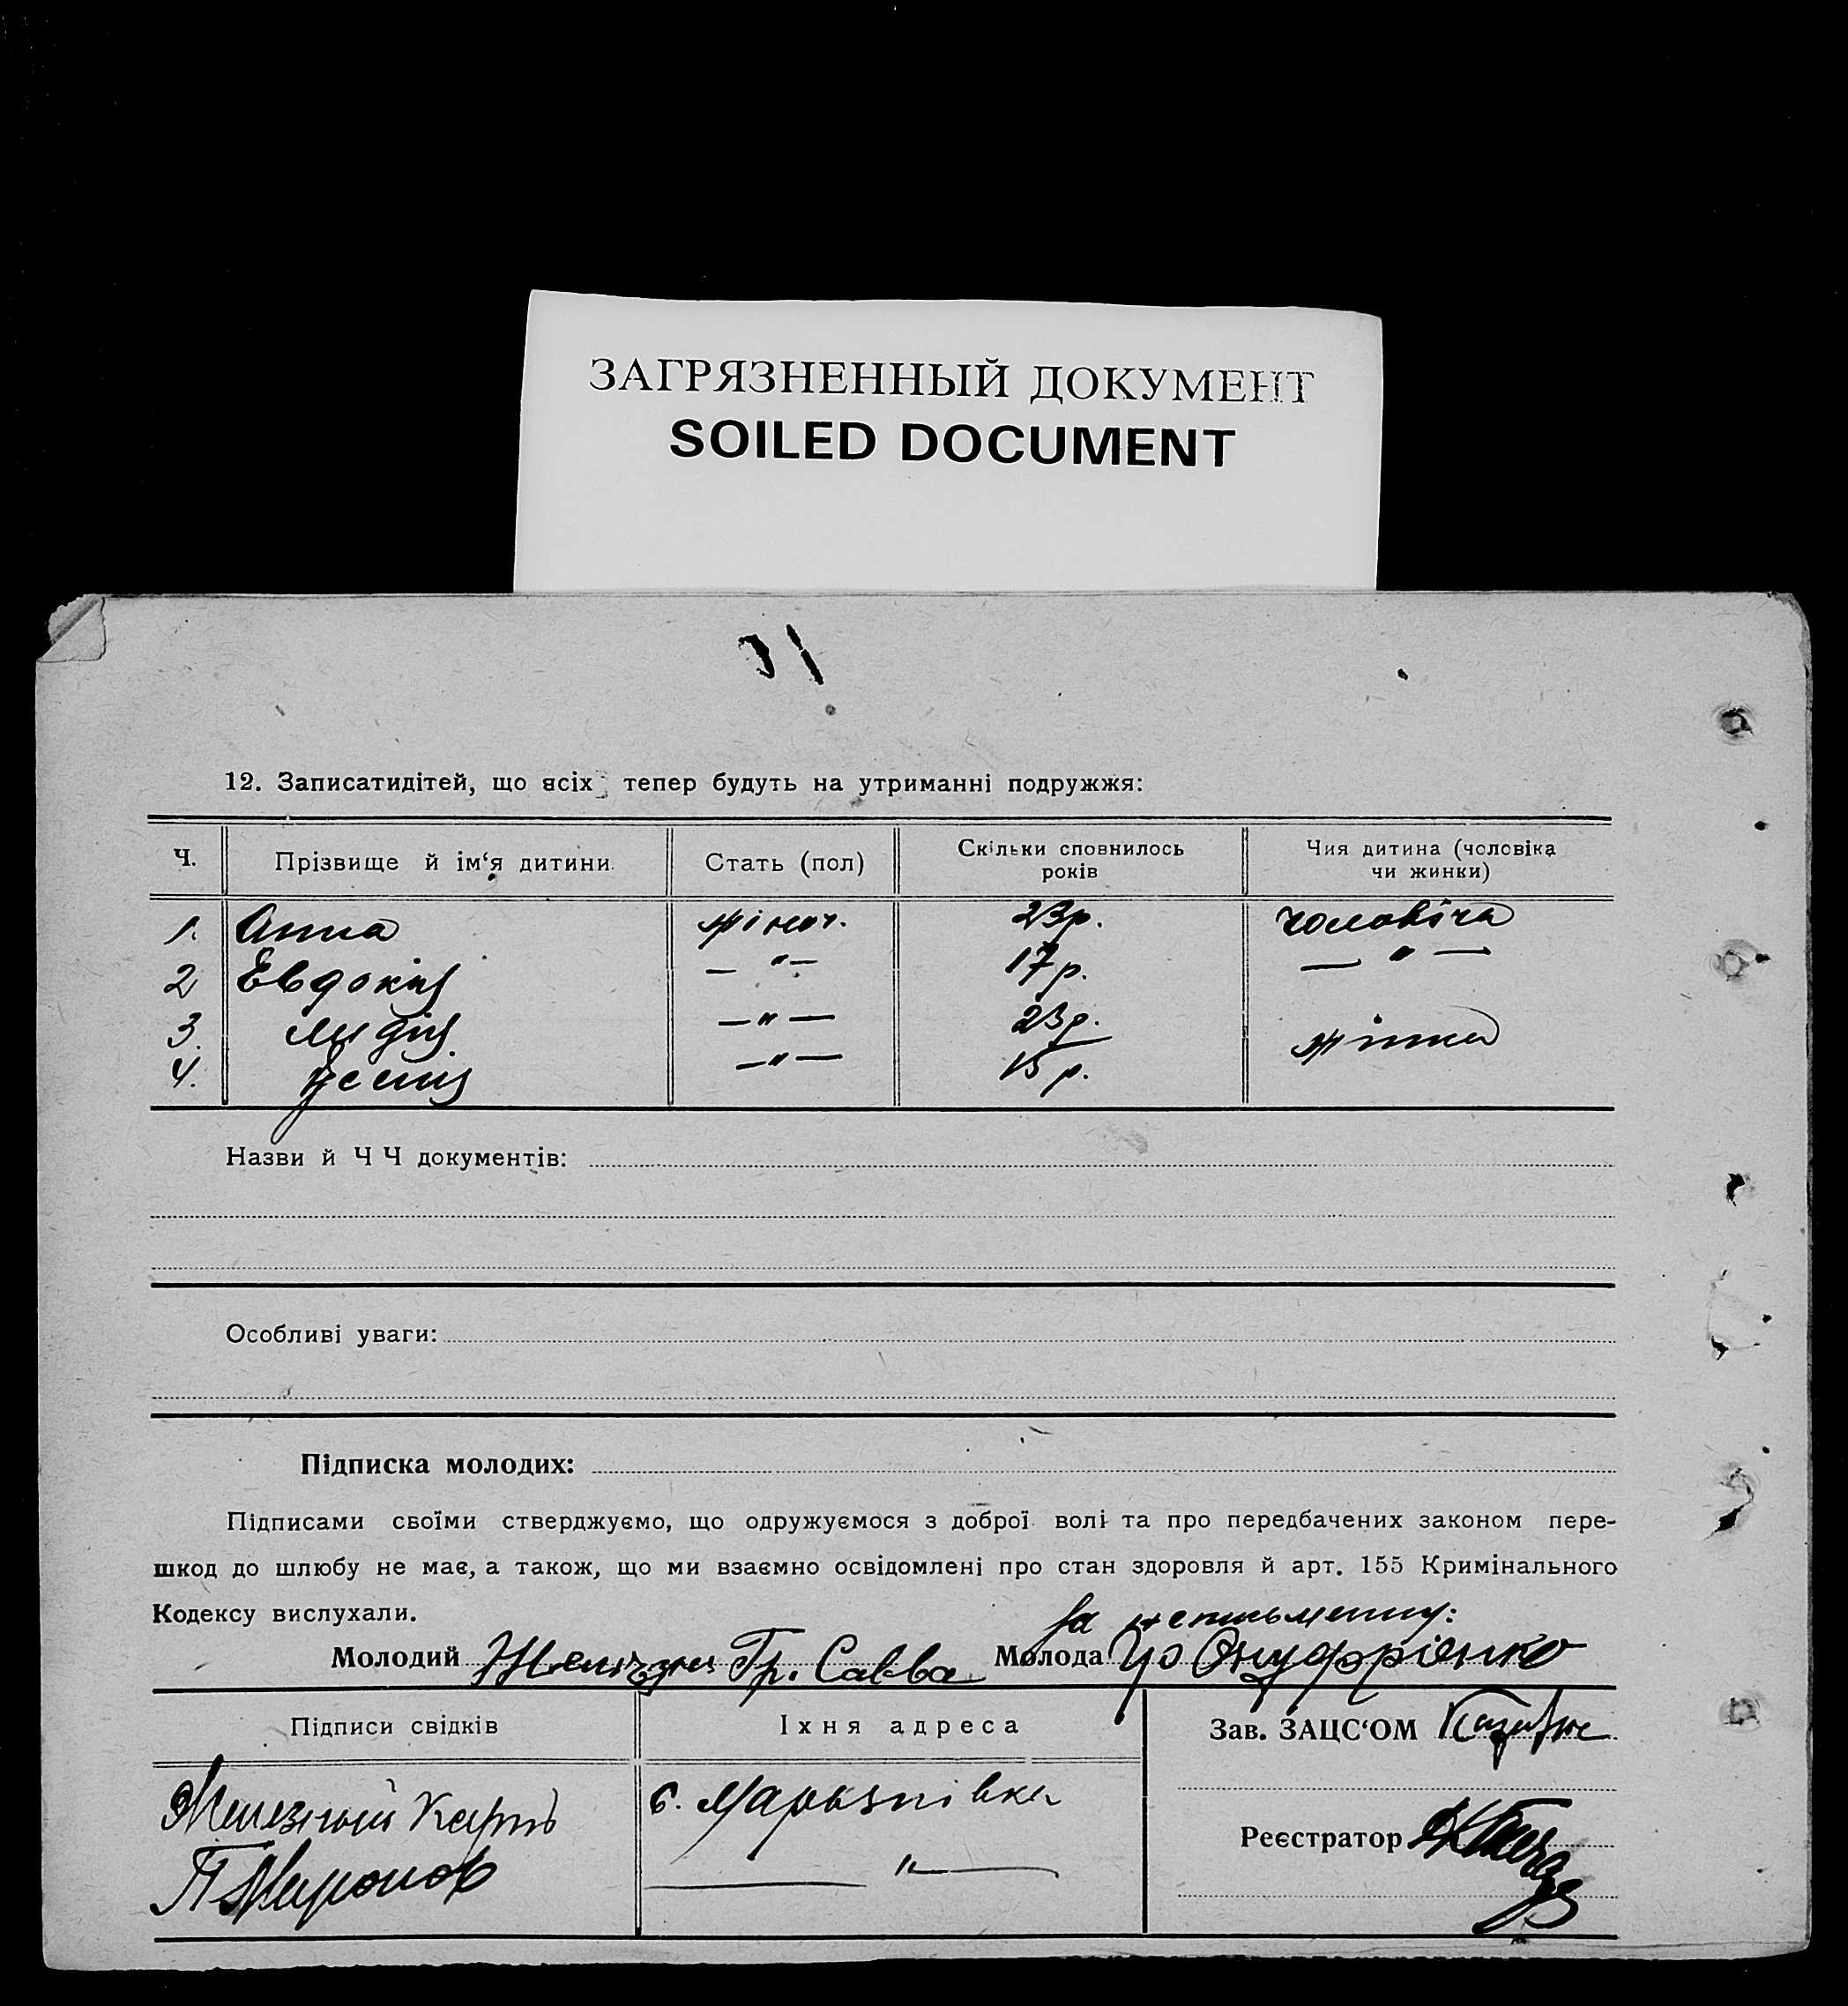 ЗАГРЯЗНЕННЫЙ ДОКУМЕНТ
SOILED DOCUMENT
12. Записатидітей, що всіх тепер будуть на утриманні подружжя:
Ч. Прізвище й ім‘я дитини. Стать (пол) Скільки сповнилось років Чия дитина (чоловіка чи жинки)
1. Анна жіноч. 23р. чоловіча
2 Евдокія — " — 17р. — " —
3. Лидія — " — 23р. жінки
4. — " — 15 р.
Назви й Ч Ч документів:
Особливі уваги:
Підписка молодих:
Підписами своїми стверджуємо, що одружуємося з доброї волі та про передбачених законом пере-
шкод до шлюбу не має, а також, що ми взаємно освідомлені про стан здоровля й арт. 155 Кримінального
Кодексу вислухали.
За неписьменну:
Молодий Гр. Савва Молода Онуфрієнко
Підписи свідків Їхня адреса Зав. ЗАЦС‘ОМ
с. Мар
П Миронов — " —
Реєстратор